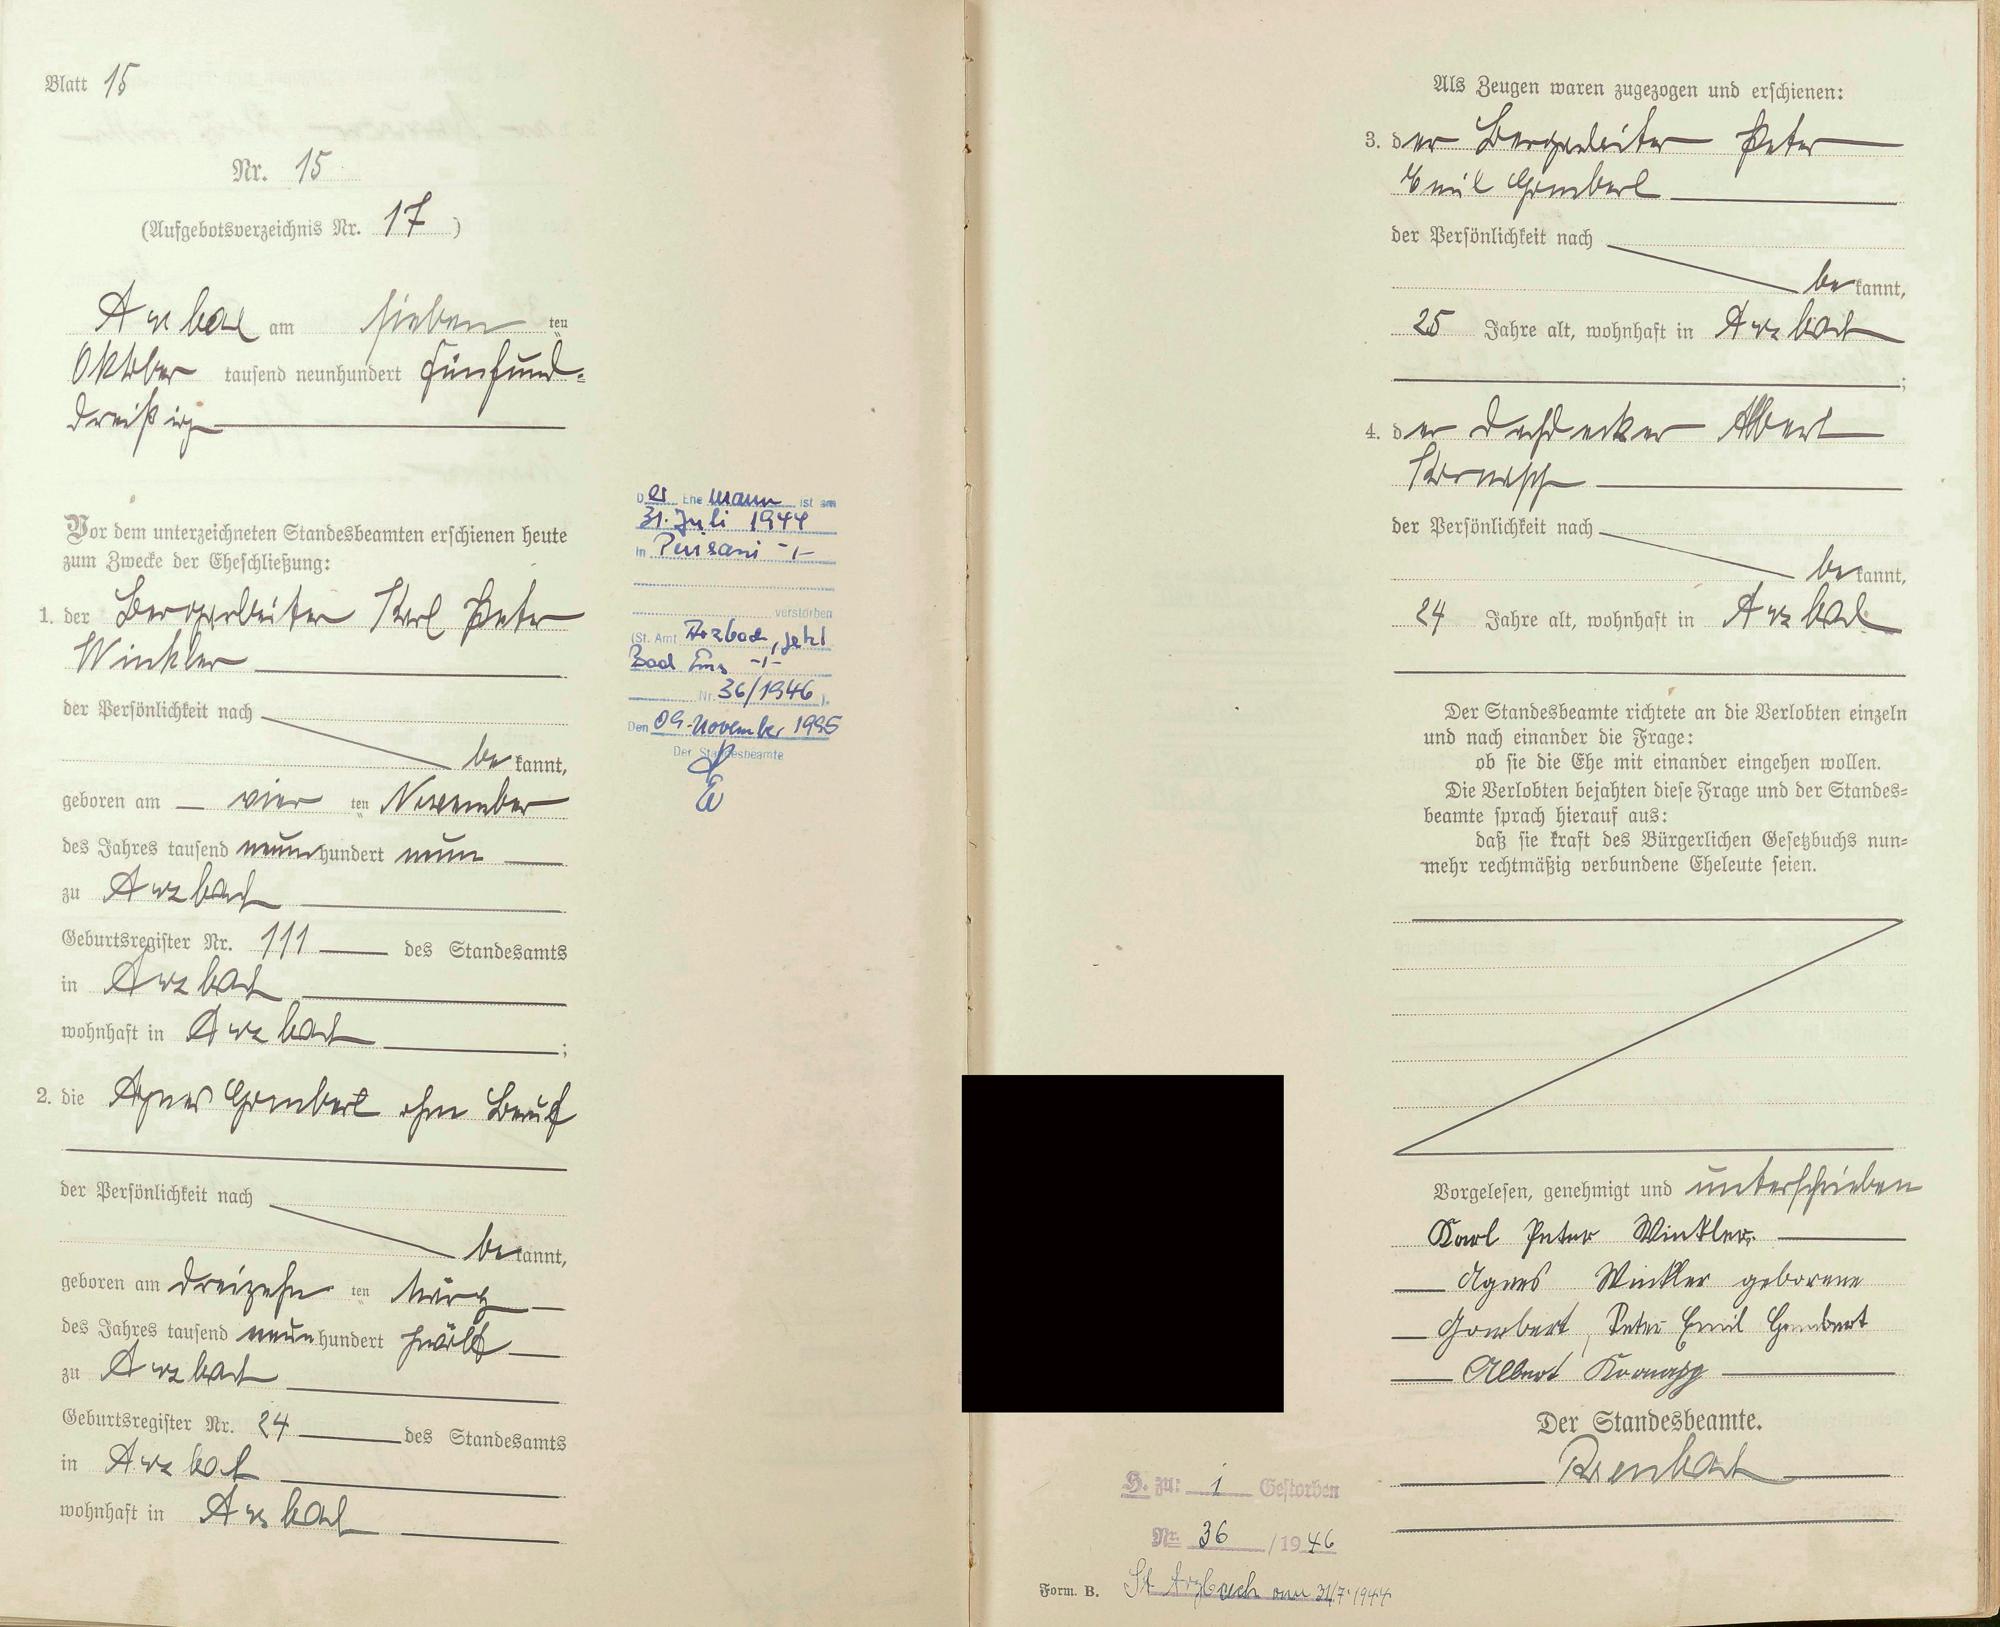 Blatt 15
Nr. 15
(Aufgebotsverzeichnis Nr. 17)
Arzbach am sieben ten
Oktober tausend neunhundert fünfund-
dreißig
Vor dem unterzeichneten Standesbeamten erschienen heute
zum Zwecke der Eheschließung:
1. der Bergarbeiter Karl Peter
Winkler
der Persönlichkeit nach
be kannt,
geboren am vier ten November
des Jahres tausend neun hundert neun
zu Arzbach
Geburtsregister Nr. 111 des Standesamts
in Arzbach
wohnhaft in Arzbach ;
2. die Agnes Gombert ohne Beruf
der Persönlichkeit nach
be kannt,
geboren am dreizehn ten März
des Jahres tausend neun hundert zwölf
zu Arzbach
Geburtsregister Nr. 24 des Standesamts
in Arzbach
wohnhaft in Arzbach
Der Ehemann ist am
31. Juli 1944
in Perisani -/-
verstorben
(St. Amt Arzbach, jetzt
Bad Ems -/-
Nr. 36/1946 ).
Den 09. November 1995
Der Standesbeamte
Als Zeugen waren zugezogen und erschienen:
3. der Bergarbeiter Peter
Emil Gombert
der Persönlichkeit nach
be kannt,
25 Jahre alt, wohnhaft in Arzbach
;
4. der Dachdecker Albert
der Persönlichkeit nach
be kannt,
24 Jahre alt, wohnhaft in Arzbach
Der Standesbeamte richtete an die Verlobten einzeln
und nach einander die Frage:
ob sie die Ehe mit einander eingehen wollen.
Die Verlobten bejahten diese Frage und der Standes-
beamte sprach hierauf aus:
daß sie kraft des Bürgerlichen Gesetzbuchs nun-
mehr rechtmäßig verbundene Eheleute seien.
Vorgelesen, genehmigt und unterschrieben
Karl Peter Winkler
Agnes Winkler geborene
Gombert, Peter Emil Gombert
Albert
Der Standesbeamte.
H. zu: 1 Gestorben
Nr. 36 /1946
Form. B. St. Arzbach am 31/7. 1944